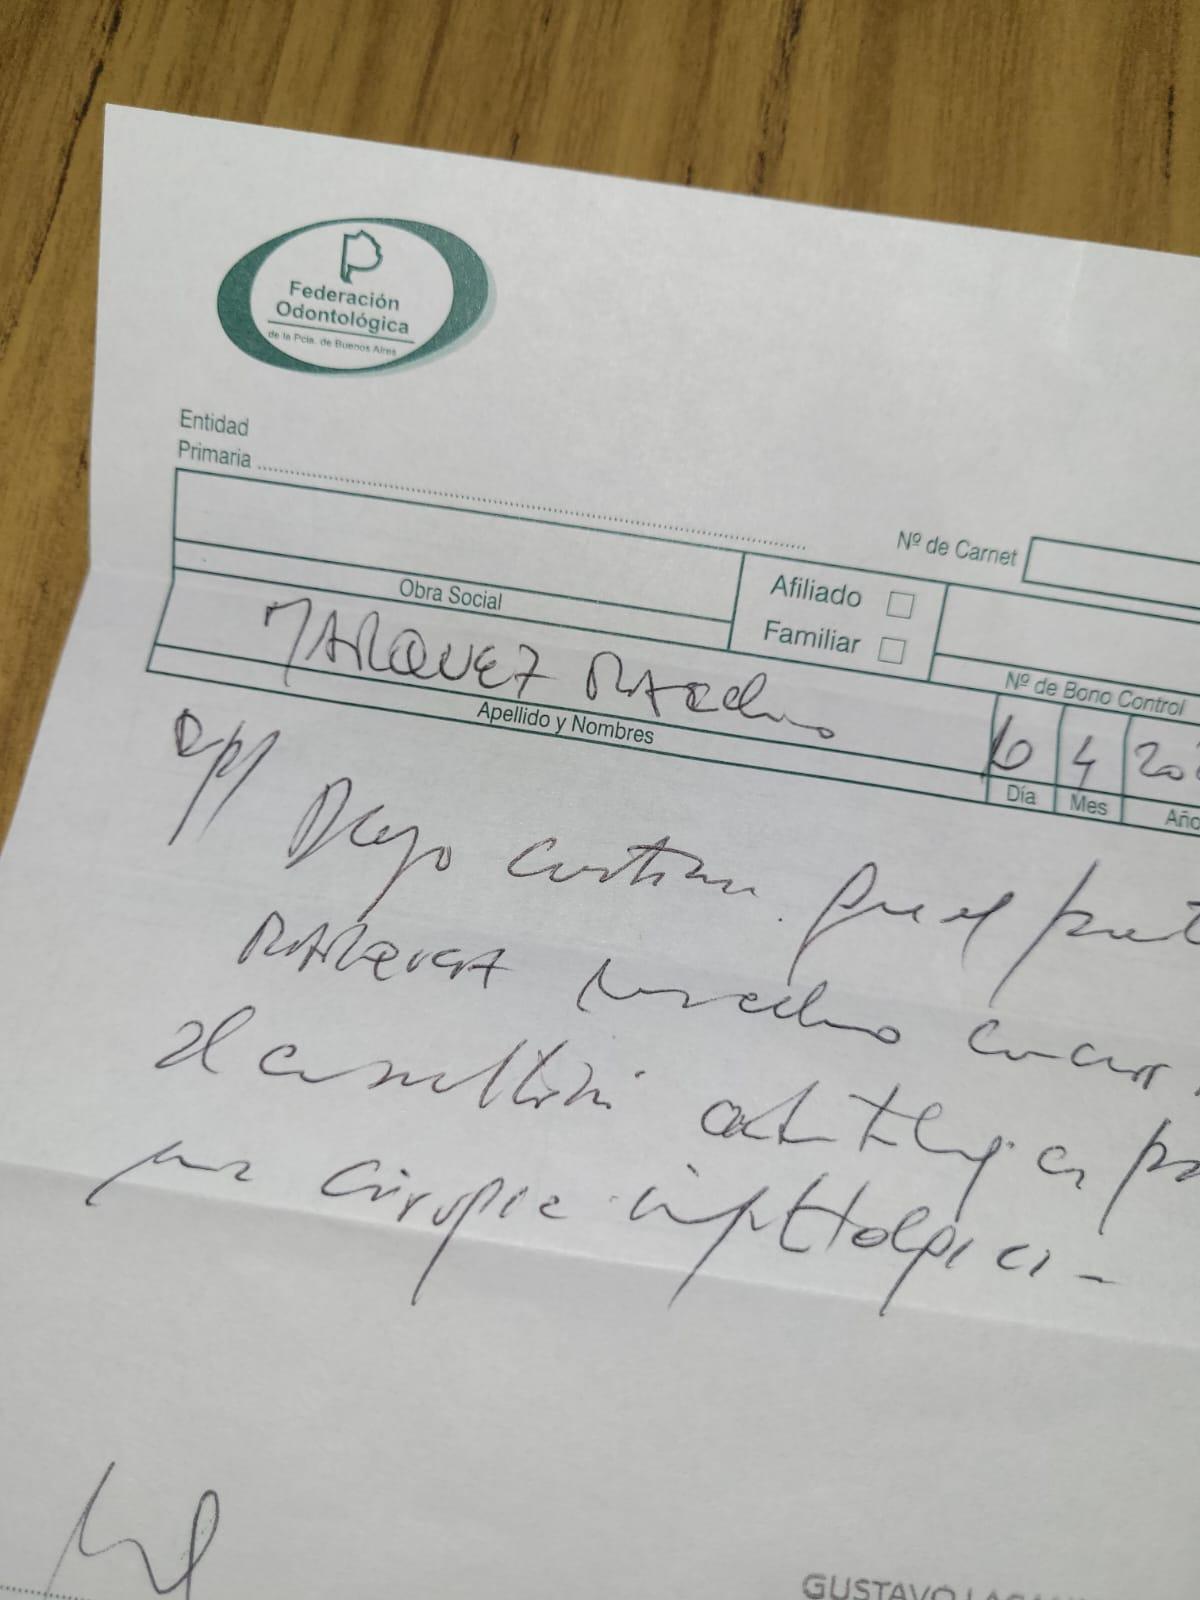 Federación
Odontológica
de la Pcia. de Buenos Aires
Entidad
Primaria
Nº de Carnet
Obra Social
Afiliado
Familiar
Nº de Bono Control
MARQUEZ Marcelino
Apellido y Nombres
10 4 20
Día Mes Año
Dejo constancia que el
MARQUEZ Marcelino
al consultorio odontológico
una cirugía
GUSTAVO